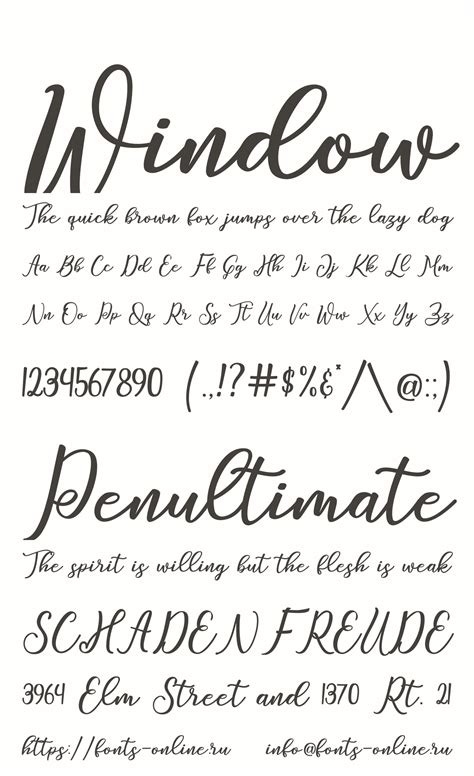 Window
The quick brown fox jumps over the lazy dog
Aa Bb Cc Dd Ee Ff Gg Hh Ii Jj Kk Ll Mm
Nn Oo Pp Qq Rr Ss Tt Uu Vv Ww Xx Yy Zz
1234567890 (.,!?#$%&*/\@:;)
Penultimate
The spirit is willing but the flesh is weak
SCHADENFREUDE
3964 Elm Street and 1370 Rt. 21
https://fonts-online.ru info@fonts-online.ru